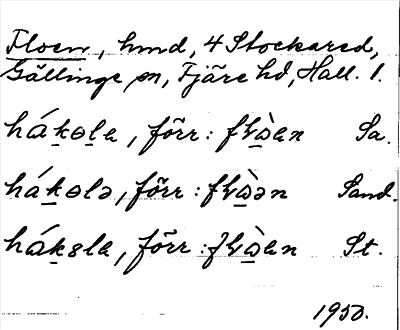 Floen, hmd, 4 Stockared,
Gällinge sn, Fjäre hd, Hall. l.
háksla, förr: flꝏ̀an Sa.
hákslə, förr: flꝏ̀ən Sand.
háksla, förr: flꝏ̀an St.
1950.